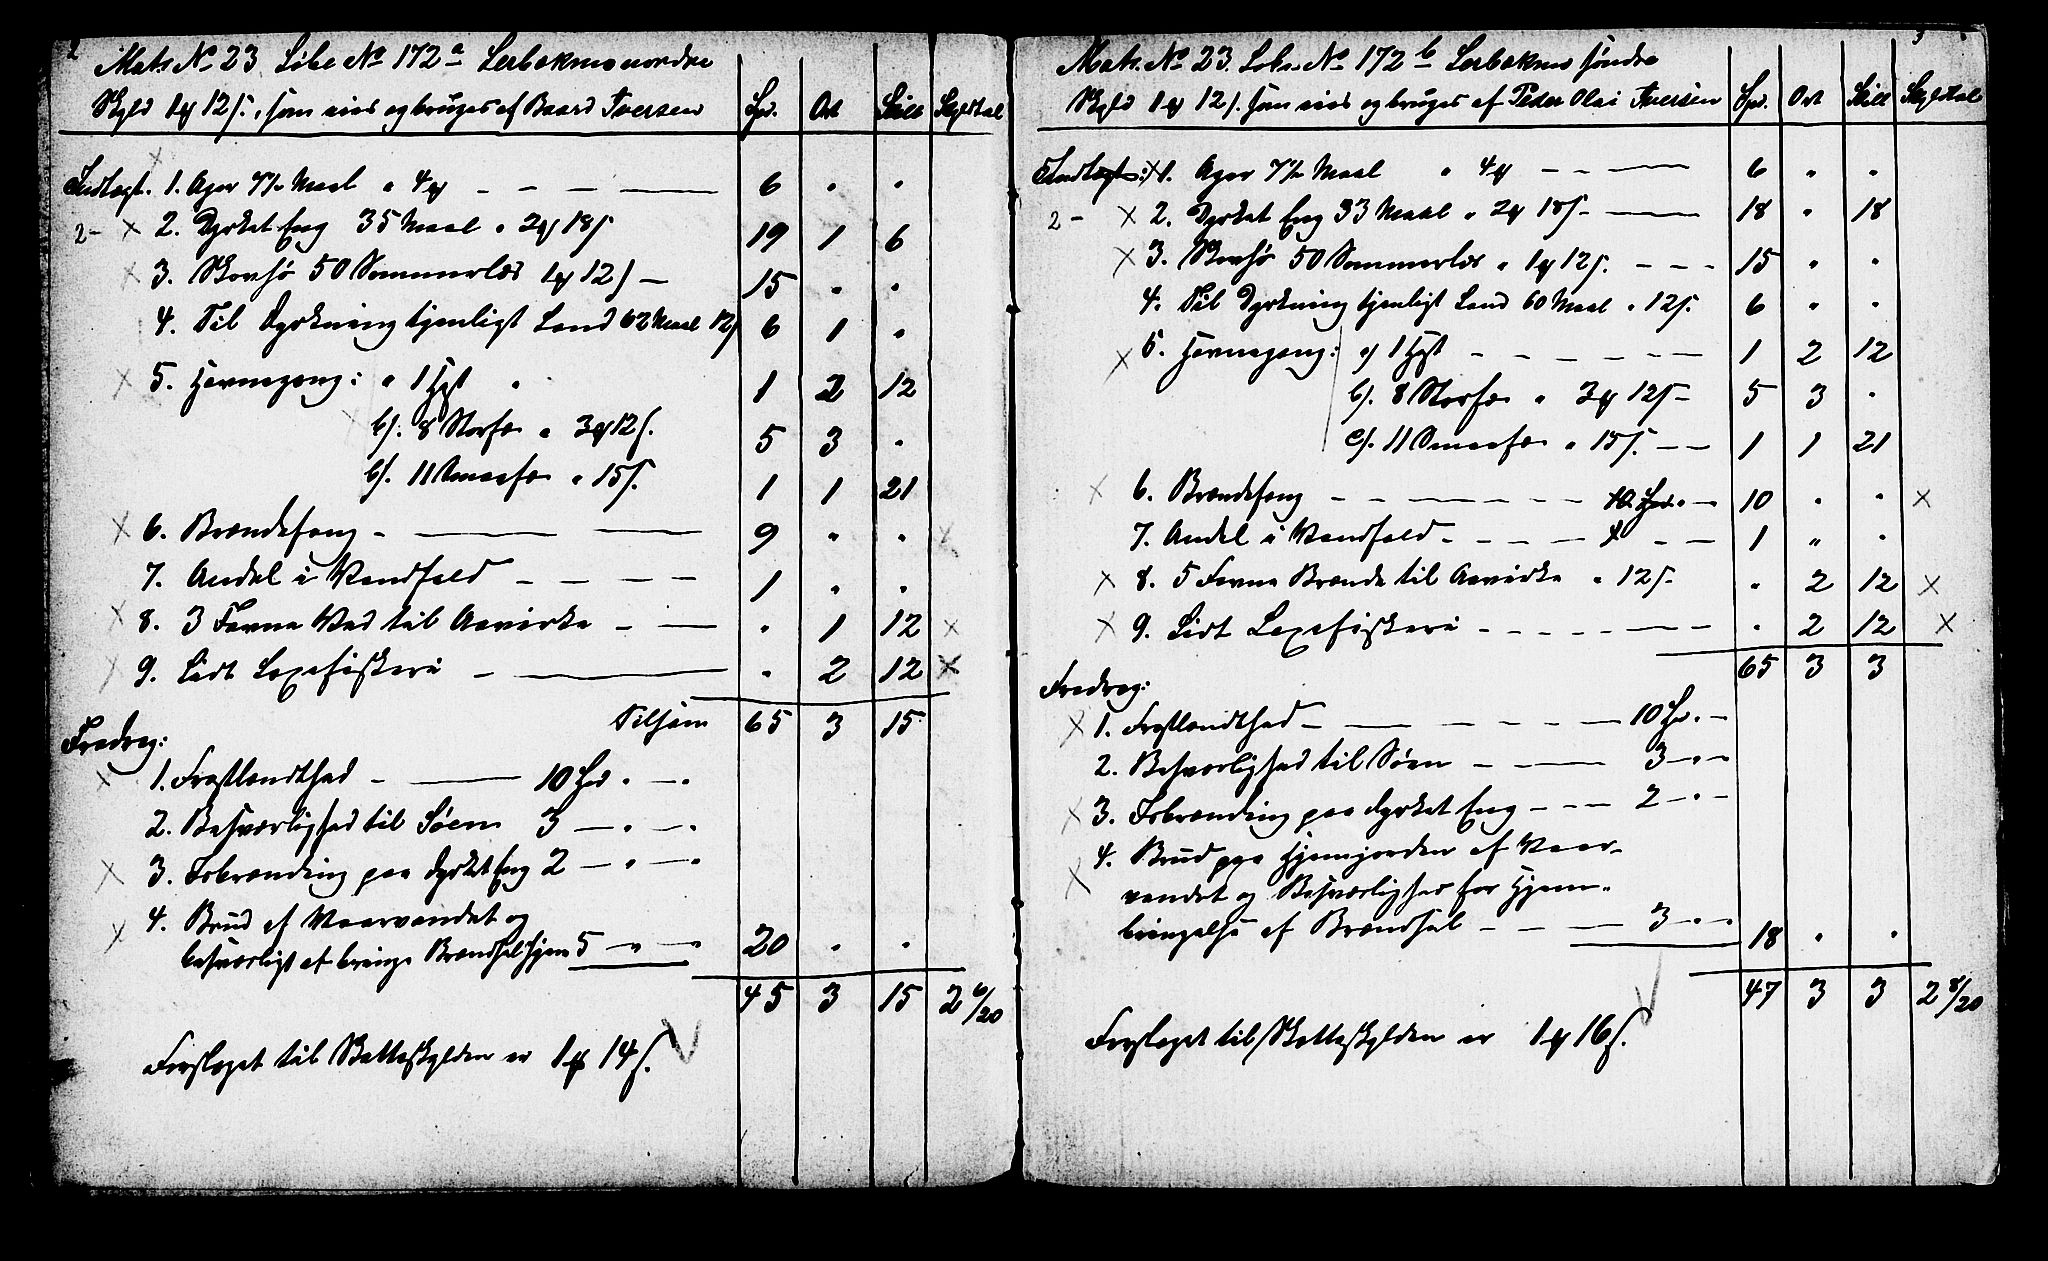 2
Mats No 23 Löbe No 172a Lerbækmo nordre
Skyld 1 ort 12 s., som eies og bruges af Baard Iversen Spd. Ort Skill Skyldtal
Indtægt. 1. Ager 7½ Maal " 4 ort — — — 6 " "
2- × 2. Dyrket Eng 35 Maal " 2 ort 18 s 19 1 6
× 3. Skovhö 50 Sommerlæs 1 ort 12 s — 15 " "
4. Til Dyrkning tjenligt Land 62 Maal 12 s 6 1 "
× 5. Havnegang: " 1 Hest " 1 2 12
b/. 8 Storfæ " 3 ort 12 s. 5 3 "
b/. 11 Smaafæ " 15 s. 1 1 21
× 6. Brændefang - — — 9 " " ×
7. Andel i Vandfald — — — — 1 " "
× 8. 3 Favne Ved til Aavirke — — " 1 12 ×
× 9. Lidt Laxefiskeri — — " 2 12 ×
Tilsam 65 3 15
Fradrag:
× 1. Frostlændthed — — 10 Spd " — "
2. Besværlighed til Söen 3 — " — "
× 3. Forbrænding paa dyrket Eng 2 — " — "
× 4. Brud af Vaarvandet og
besværligt at bringe Brændsel hjem 5 " — " 20 " "
45 3 15 2 6/20
Forslaget til Skatteskylden er 1 ort 14 s. V
3
Mats. No 23. Löbe. No 172 b Lerbækmo söndre
Skyld 1 ort 12 s. som eies og bruges af Peder Olai Iversen Spd. Ort Skill Skyldtal
Indtægt: × 1. Ager 7½ Maal " 4 ort — — — 6 " "
2- × 2. Dyrket Eng 33 Maal " 2 ort 18 s. — — 18 " 18
× 3. Skovhö 50 Sommerlæs " 1 ort 12 s. — — — 15 " "
4. Til Dyrkning tjenligt Land 60 Maal " 12 s. 6 " "
× 5. Havnegang: a/ 1 Hest — — — — — 1 2 12
b/. 8 Storfæ " 3 ort 12 s — 5 3 "
c/. 11 Smaafæ " 15 s. — — 1 1 21
× 6. Brændefang — — — — — 10 Spd. " — 10 " " ×
7. Andel i Vandfald — — — — — 1 " "
× 8. 5 Favne Brænde til Aavirke " 12 s. " 2 12 ×
× 9. Lidt Laxefiskeri — — — — — " 2 12 ×
65 3 3
Fradrag:
× 1. Frostlændthed — — — — — 10 Spd. " —
2. Besværlighed til Söen — — — 3 — " —
× 3. Forbrænding paa dyrket Eng — — — 2 — " —
× 4. Brud paa Hjemjorden af Vaar-
vandet og Besværlighed for Hjem-
bringelse af Brændsel — — — 3 " " 18 " "
47 3 3 2 8/20
Forslaget til Skatteskylden er 1 ort 16 s. V